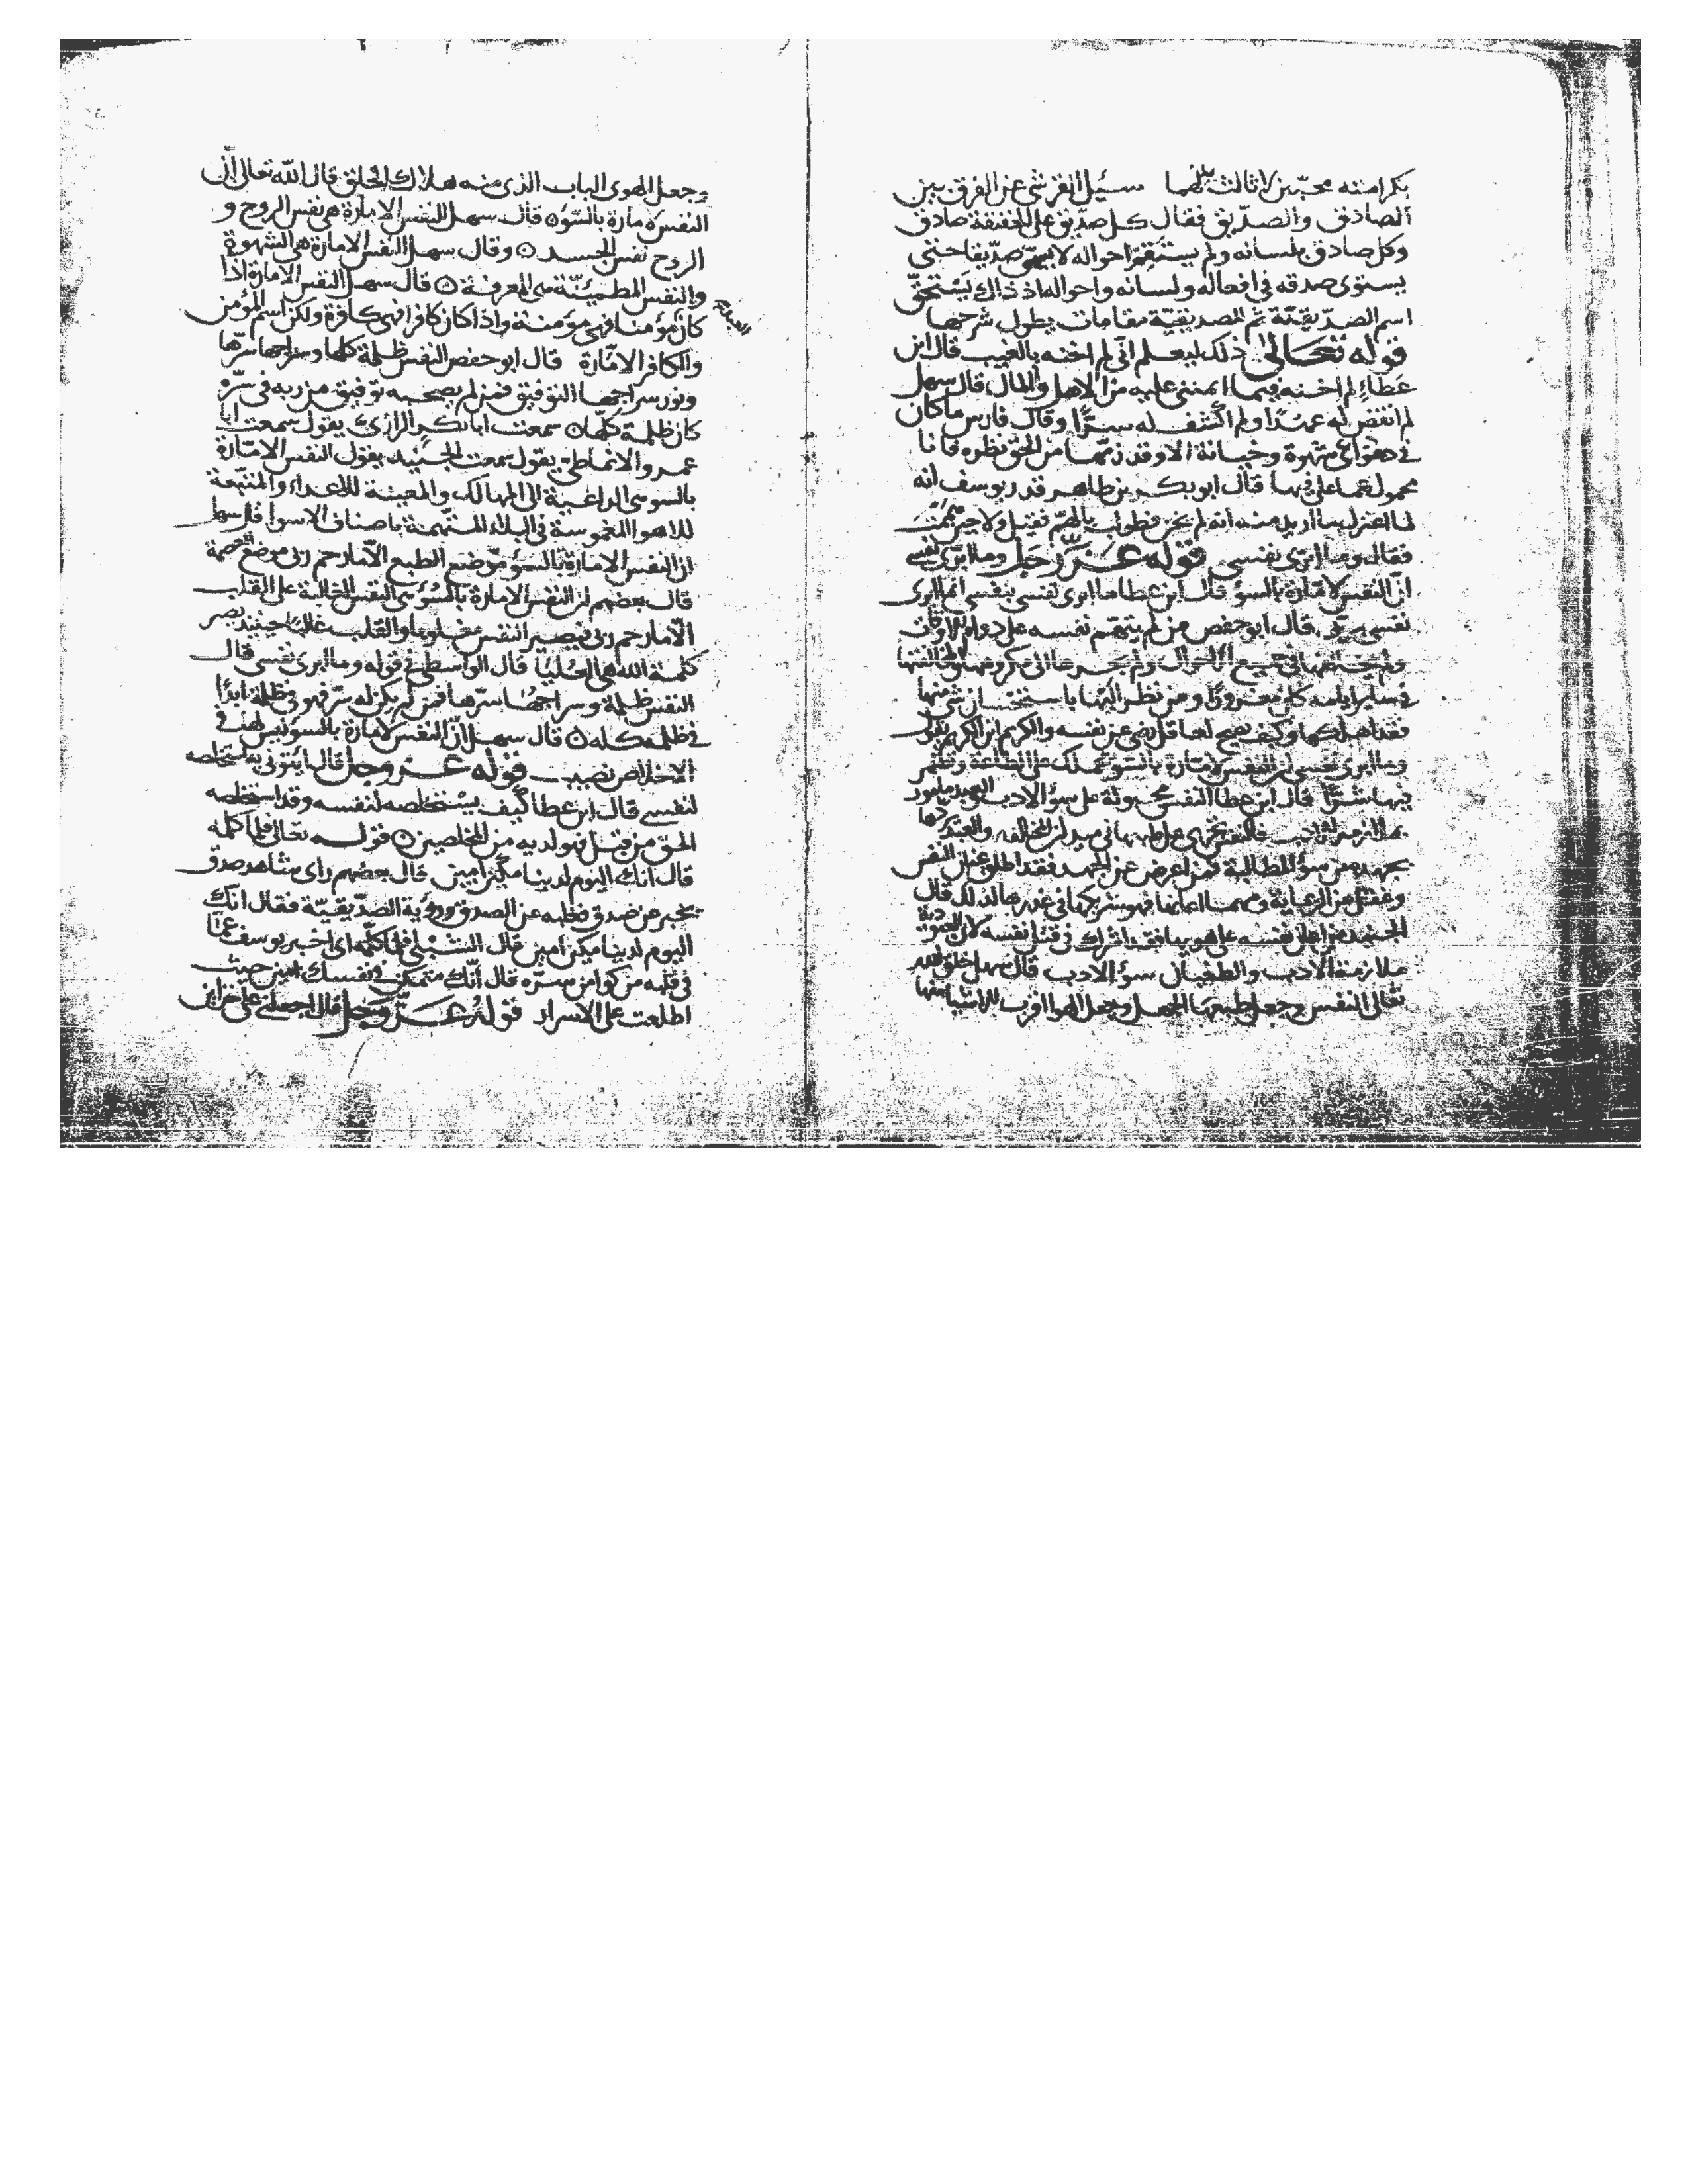 بكرامته محبّين لا ثالث لهما سئيل القرشي عن الفرق بين
الصادق والصدّيق فقال كل صدّيق على الحقيقة صادق
وكل صادق بلسانه ولم يستقم احواله لا يسمّى صدّيقا حتى
يستوى صدقه في افعاله ولسانه واحواله اذ ذاك يستحق
اسم الصدّيقيّة ثم الصديقيّة مقامات يطول شرحها
قوله تعالى ذلك ليعلم انّي لم اخنه بالغيب قال ابن
عطاءٍ لم اخنه فيما ايتمننى عليه من الاهل والمال قال سهل
لم انقض له عهدًا ولم اكشف له سترًا وقال فارس ما كان
في دواعى شهوة وخيانة الا وقد زمّها من الحق نظره فانا
محمول عما علىّ فيها قال ابو بكر بن طاهر قدر يوسف انه
لما اعتزل بما اريد منه انه لم يخن فطولب بالهمّ فقيل ولا حين هممت
فقال وما ابرى نفسى قوله عزّ وجل وما ابرّى نفسى
انّ النفس لامّارة بالسوٓ قال ابن عطا ما ابرى نفسى بنفسى انما ابرى
نفسى بربّى قال ابو حفص من لم يتهم نفسه على دوام الاوقات
ولم يخالفها في جميع الاحوال ولم يجرها الى مكروهها ومخالفتها
في ساير ايامه كان مغرورًا ومن نظر اليها باستحسان شي منها
فقد اهلكها وكيف يصح لعاقل رضى عن نفسه والكريم ابن الكريم يقول
وما ابرى نفسى ان النفس لامّارة بالسوٓ تحملك على الطاعة وتضمر
فيها شرًّا قال ابن عطا النفس مجبولة على سوٓ الادب والعبد مامور
بملازمة الادب فالنفس تجرى على طبعها في ميدان المخالفه والعبد يردّها
بجهده من سوٓ المطالبة فمن اعرض عن الجهد فقد اطلق عنان النفس
وغفل عن الرعاية ومهما اعانها فهو شريكها في غدرها لذلك قال
الجنيد من اعان نفسه على هويها فقد اشرك في قتل نفسه لان العبودية
ملازمة الادب والطغيان سوٓ الادب قال سهل خلق الله
تعالى النفس وجعل طبعها الجهل وجعل الهوا اقرب الاشيا منها
وجعل الهوى الباب الذى منه هلاك الخلق قال الله تعالى انّ
النفس لامارة بالسّوٓ قال سهل النفس الامارة هى نفس الروح و
الروح نفس الجسد وقال سهل النفس الامارة هى الشهوة
والنفس المطمئنّة هى المعرفة قال سهل النفس الامارة اذا
كان مؤمنا فهى مؤمنة واذا كان كافرا فهى كافرة ولكن اسم المؤمن
والكافر الامّارة قال ابو حفص النفس ظلمة كلها وسراجها سرّها
ونور سراجها التوفيق فمن لم يصحبه توفيق من ربه في سرّه
كان ظلمة كلّها سمعت ابا بكر الرازى يقول سمعت ابا
عمرو الانماطى يقول سمعت الجنيد يقول النفس الامّارة
بالسوٓ هى الداعية الى المهالك والمعينة للاعداء والمتّبعة
للاهوا المغموسة في البلاء المتّهمة باصناف الاسوا قال سهل
ان النفس الامارة بالسوٓ موضع الطبع الّا ما رحم ربّى موضع العصمة
قال بعضهم ان النفس الامارة بالسوٓ هى النفس الغالبة على القلب
الّا ما رحم ربى فيصير النفس مغلوبا والقلب غالبا حينيذ يصر
كلمة الله هى العليا قال الواسطى في قوله وما ابرى نفسى قال
النفس ظلمة وسراجها سرّها فمن لم يكن له سرّ فهو في ظلمة ابدًا
في ظلمه كله قال سهل انّ النفس لامارة بالسوٓ ليس لها في
الاخلاص نصيب قوله عز وجل قال ايتونى به استخلصه
لنفسى قال ابن عطا كيف يستخلصه لنفسه وقد استخلصه
الحق من قبل فهو لديه من المخلصين قوله تعالى فلما كلّمه
قال انك اليوم لدينا مكين امين قال بعضهم راى شاهد صدق
يخبر عن صدق فعله عن الصدق ورؤية الصدّيقيّة فقال انك
اليوم لدينا مكين امين قال الشبلى فلما كلّمه اى اخبر يوسف عمّا
في قلبه من كوامن سرّه قال انّك متمكن في نفسك امين حيث
اطلعت على الاسرار قوله عزّ وجل قال اجعلنى على خزاين